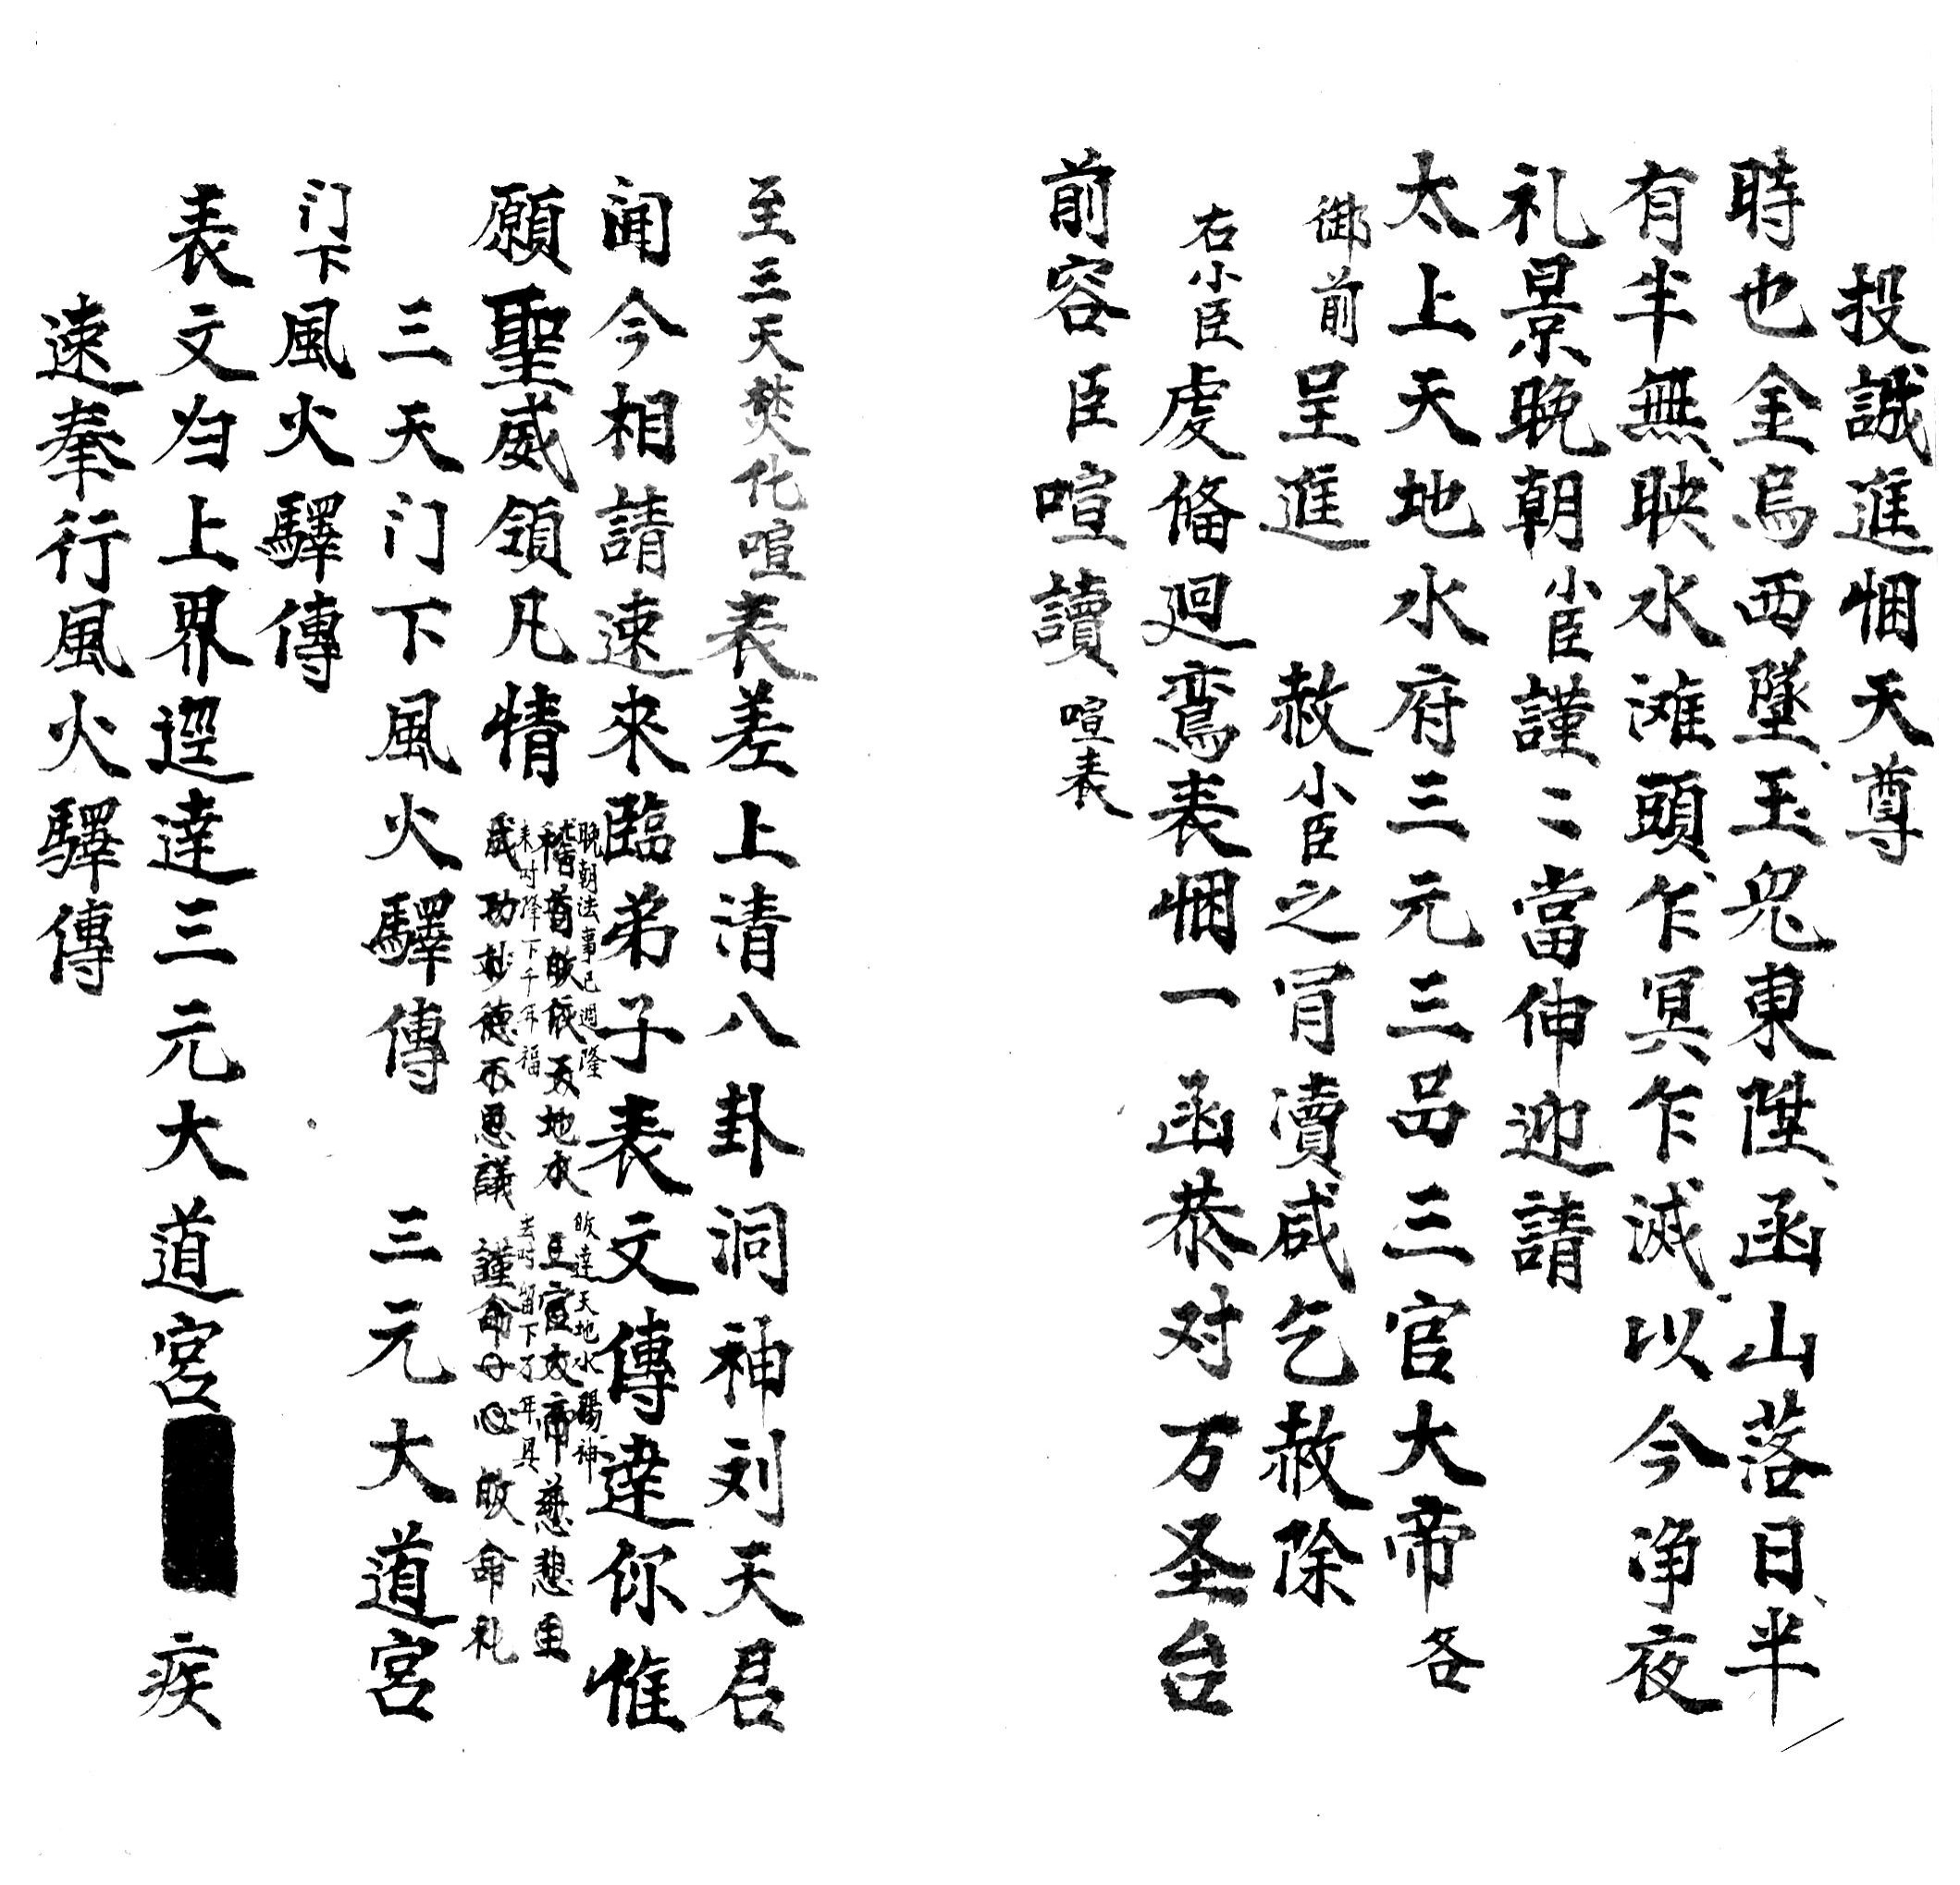 投誠進悃天尊
時也金烏西墜玉兔東陞函山落日半
有半無映水滩頭乍冥乍滅以今净夜
礼景晩朝小臣謹〻當伸迎請
太上天地水府三元三品三官大帝各
御前呈進 赦小臣之冐瀆咸乞赦除
右小臣虔俻廻鸞表悃一函恭对万圣台
前容臣喧讀喧表
至三天焚化喧表差上清八卦洞神刘天君
闻今相請速來臨弟子表文傳達你惟
願聖威領凡情
晩朝法事已週隆 皈達天地水陽神
稽首皈依天地水 三官大帝慈悲主
来时降下千年福 去时留下万年具
威功妙德不思議 謹命 皈命礼
三天门下風火驛傳 三元大道宮
门下風火驛傳
表文归上界逕達三元大道宮 疾
速奉行風火驛傳